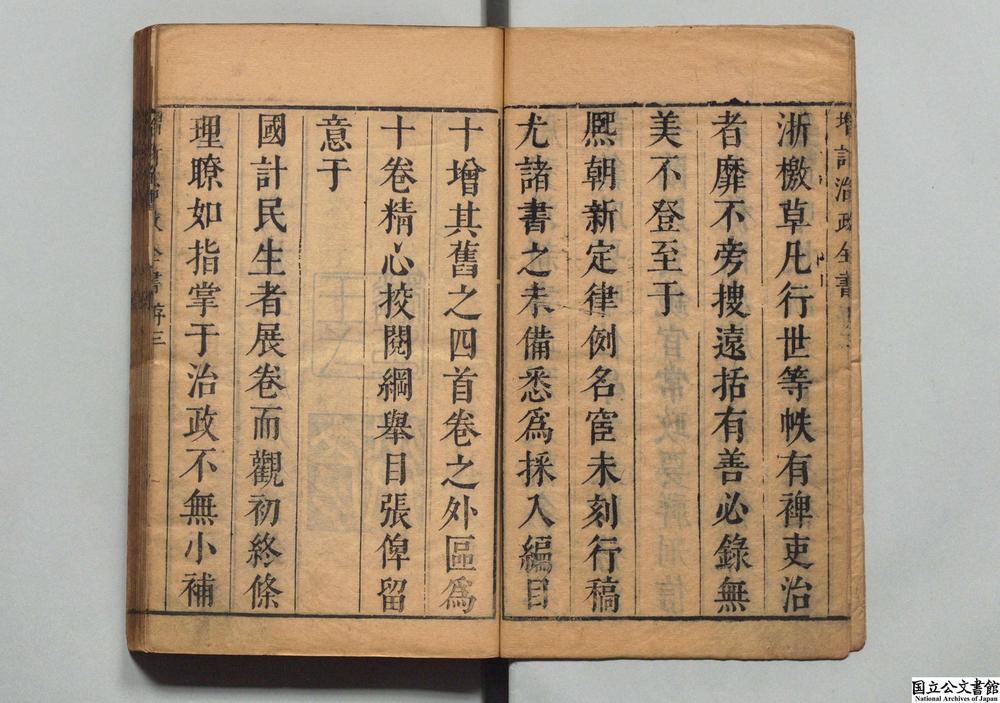 增訂治政全書
浙檄草凡行世等帙有裨吏治
者靡不旁搜遠括有善必錄無
美不登至于
熈朝新定律例名宦未刻行稿
尤諸書之未備悉爲採入編目
十增其舊之四首卷之外區爲
十卷精心挍閱綱舉目張俾留
意于
國計民生者展卷而觀初終條
理瞭如指掌于治政不無小補
政全書 序三
国立公文書館
National Archives of Japan